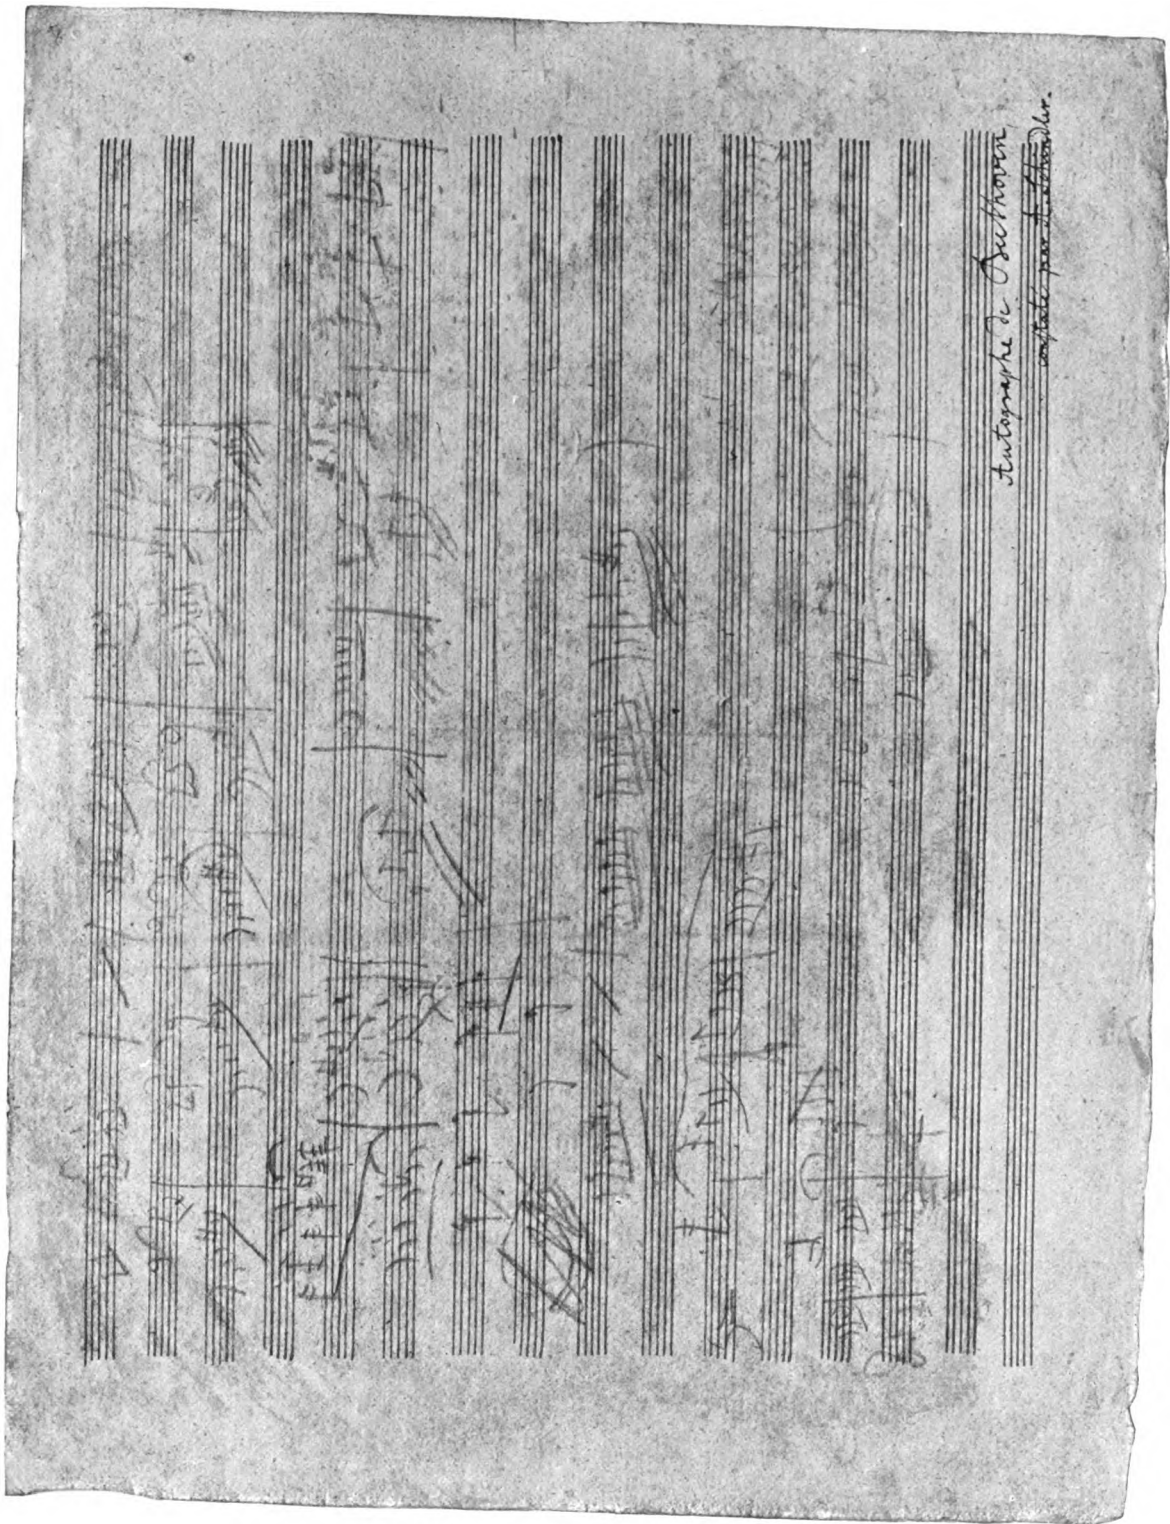 Autographe de Beethoven,
constaté par A. Schindler.